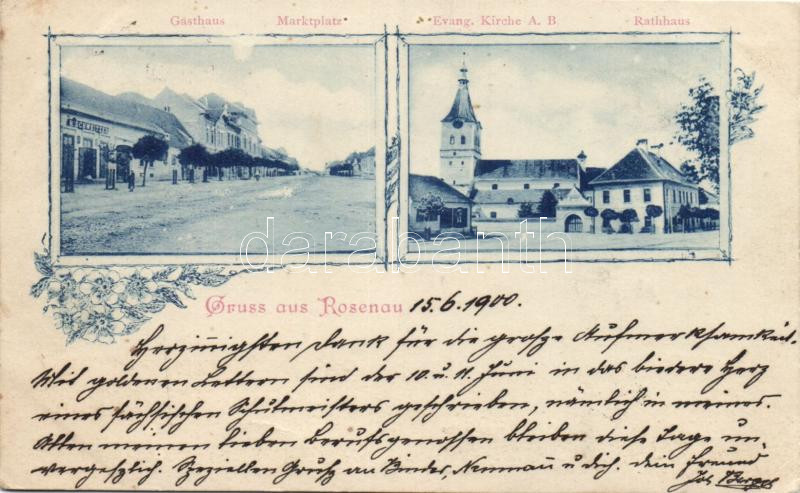 Gasthaus Marktplatz Evang. Kirche A. B. Rathhaus
darabanth.com
Gruss aus Rosenau 15.6.1900.
Herzinnigsten Dank für die große Aufmerksamkeit.
Mit goldenen Lettern sind der 10. u. 11. Juni in das biedere Herz
eines sächsischen Schulmeisters geschrieben, nämlich in meines.
Allen meinen lieben Berufsgenossen bleiben diese Tage un-
vergeßlich. Speziellen Gruß an Binder, Neumann u dich. dein Freund
Joh